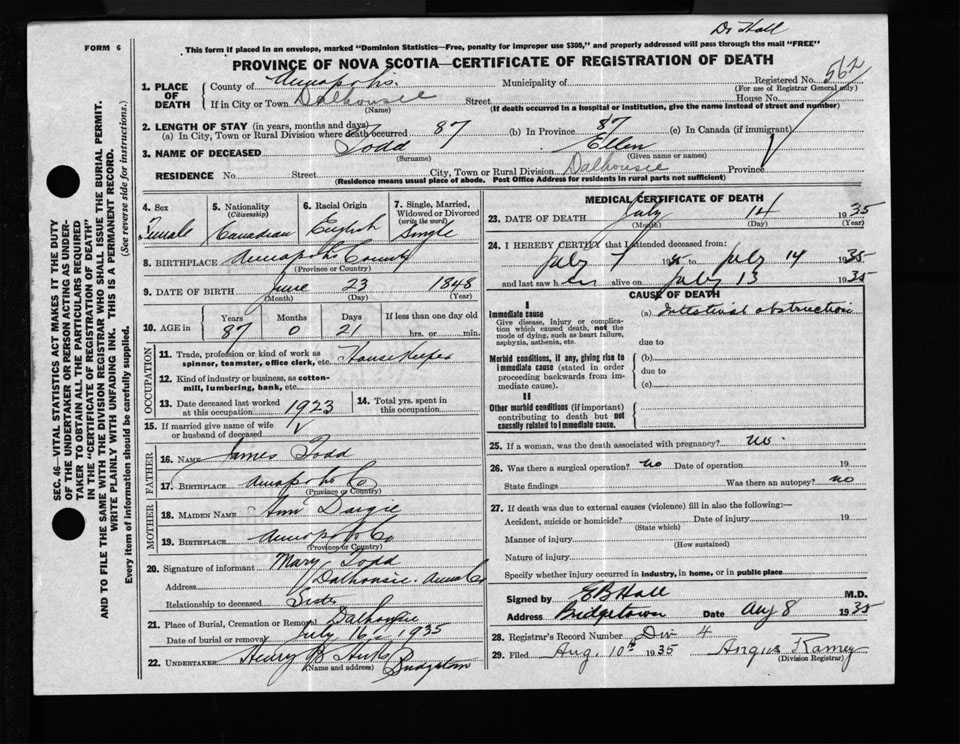 Dr Hall
FORM 6
This form if placed in an envelope, marked "Dominion Statistics—Free, penalty for improper use $300," and properly addressed will pass through the mail "FREE"
PROVINCE OF NOVA SCOTIA—CERTIFICATE OF REGISTRATION OF DEATH
1. PLACE OF DEATH
County of Annapolis. Municipality of Registered No. 562
(For use of Registrar General only)
If in City or Town Dalhousie Street House No.
(Name) (If death occurred in a hospital or institution, give the name instead of street and number)
2. LENGTH OF STAY (in years, months and days)
(a) In City, Town or Rural Division where death occurred 87 (b) In Province 87 (c) In Canada (if immigrant)
3. NAME OF DECEASED Todd Ellen
(Surname) (Given name or names)
RESIDENCE No. Street City, Town or Rural Division Dalhousie Province
(Residence means usual place of abode. Post Office Address for residents in rural parts not sufficient)
SEC. 46—VITAL STATISTICS ACT MAKES IT THE DUTY
OF THE UNDERTAKER OR PERSON ACTING AS UNDER-
TAKER TO OBTAIN ALL THE PARTICULARS REQUIRED
IN THE "CERTIFICATE OF REGISTRATION OF DEATH"
AND TO FILE THE SAME WITH THE DIVISION REGISTRAR WHO SHALL ISSUE THE BURIAL PERMIT.
WRITE PLAINLY WITH UNFADING INK. THIS IS A PERMANENT RECORD.
Every item of information should be carefully supplied. (See reverse side for instructions.)
4. Sex Female
5. Nationality (Citizenship) Canadian
6. Racial Origin English
7. Single, Married, Widowed or Divorced (write the word) Single
8. BIRTHPLACE Annapolis County
(Province or Country)
9. DATE OF BIRTH June 23 1848
(Month) (Day) (Year)
10. AGE in Years Months Days If less than one day old
87 0 21 hrs. or min.
OCCUPATION
11. Trade, profession or kind of work as spinner, teamster, office clerk, etc. House Keeper
12. Kind of industry or business, as cotton-mill, lumbering, bank, etc.
13. Date deceased last worked at this occupation 1923
14. Total yrs. spent in this occupation
15. If married give name of wife or husband of deceased
FATHER
16. NAME James Todd
17. BIRTHPLACE Annapolis Co
(Province or Country)
MOTHER
18. MAIDEN NAME Ann Dargie
19. BIRTHPLACE Annapolis Co
(Province or Country)
20. Signature of informant Mary Todd
Address Dalhousie. Anna Co
Relationship to deceased Sister
21. Place of Burial, Cremation or Removal Dalhousie
Date of burial or removal July 16 1935
22. UNDERTAKER Henry B Bridgetown
(Name and address)
MEDICAL CERTIFICATE OF DEATH
23. DATE OF DEATH July 14 1935
(Month) (Day) (Year)
24. I HEREBY CERTIFY that I attended deceased from:
July 7 19 to July 14 1935
and last saw her alive on July 13 1935
CAUSE OF DEATH
I
Immediate cause
Give disease, injury or complication which caused death, not the mode of dying, such as heart failure, asphyxia, asthenia, etc.
(a) Intestinal obstruction
due to
Morbid conditions, if any, giving rise to immediate cause (stated in order proceeding backwards from immediate cause).
(b)
due to
(c)
II
Other morbid conditions (if important) contributing to death but not causally related to immediate cause.
25. If a woman, was the death associated with pregnancy? no.
26. Was there a surgical operation? no Date of operation 19
State findings Was there an autopsy? no
27. If death was due to external causes (violence) fill in also the following:—
Accident, suicide or homicide? Date of injury 19
(State which)
Manner of injury
(How sustained)
Nature of injury
Specify whether injury occurred in industry, in home, or in public place
Signed by E B Hall M.D.
Address Bridgetown Date Aug 8 1935
28. Registrar's Record Number Div 4
29. Filed Aug. 10th 1935 Angus Ramey
(Division Registrar)